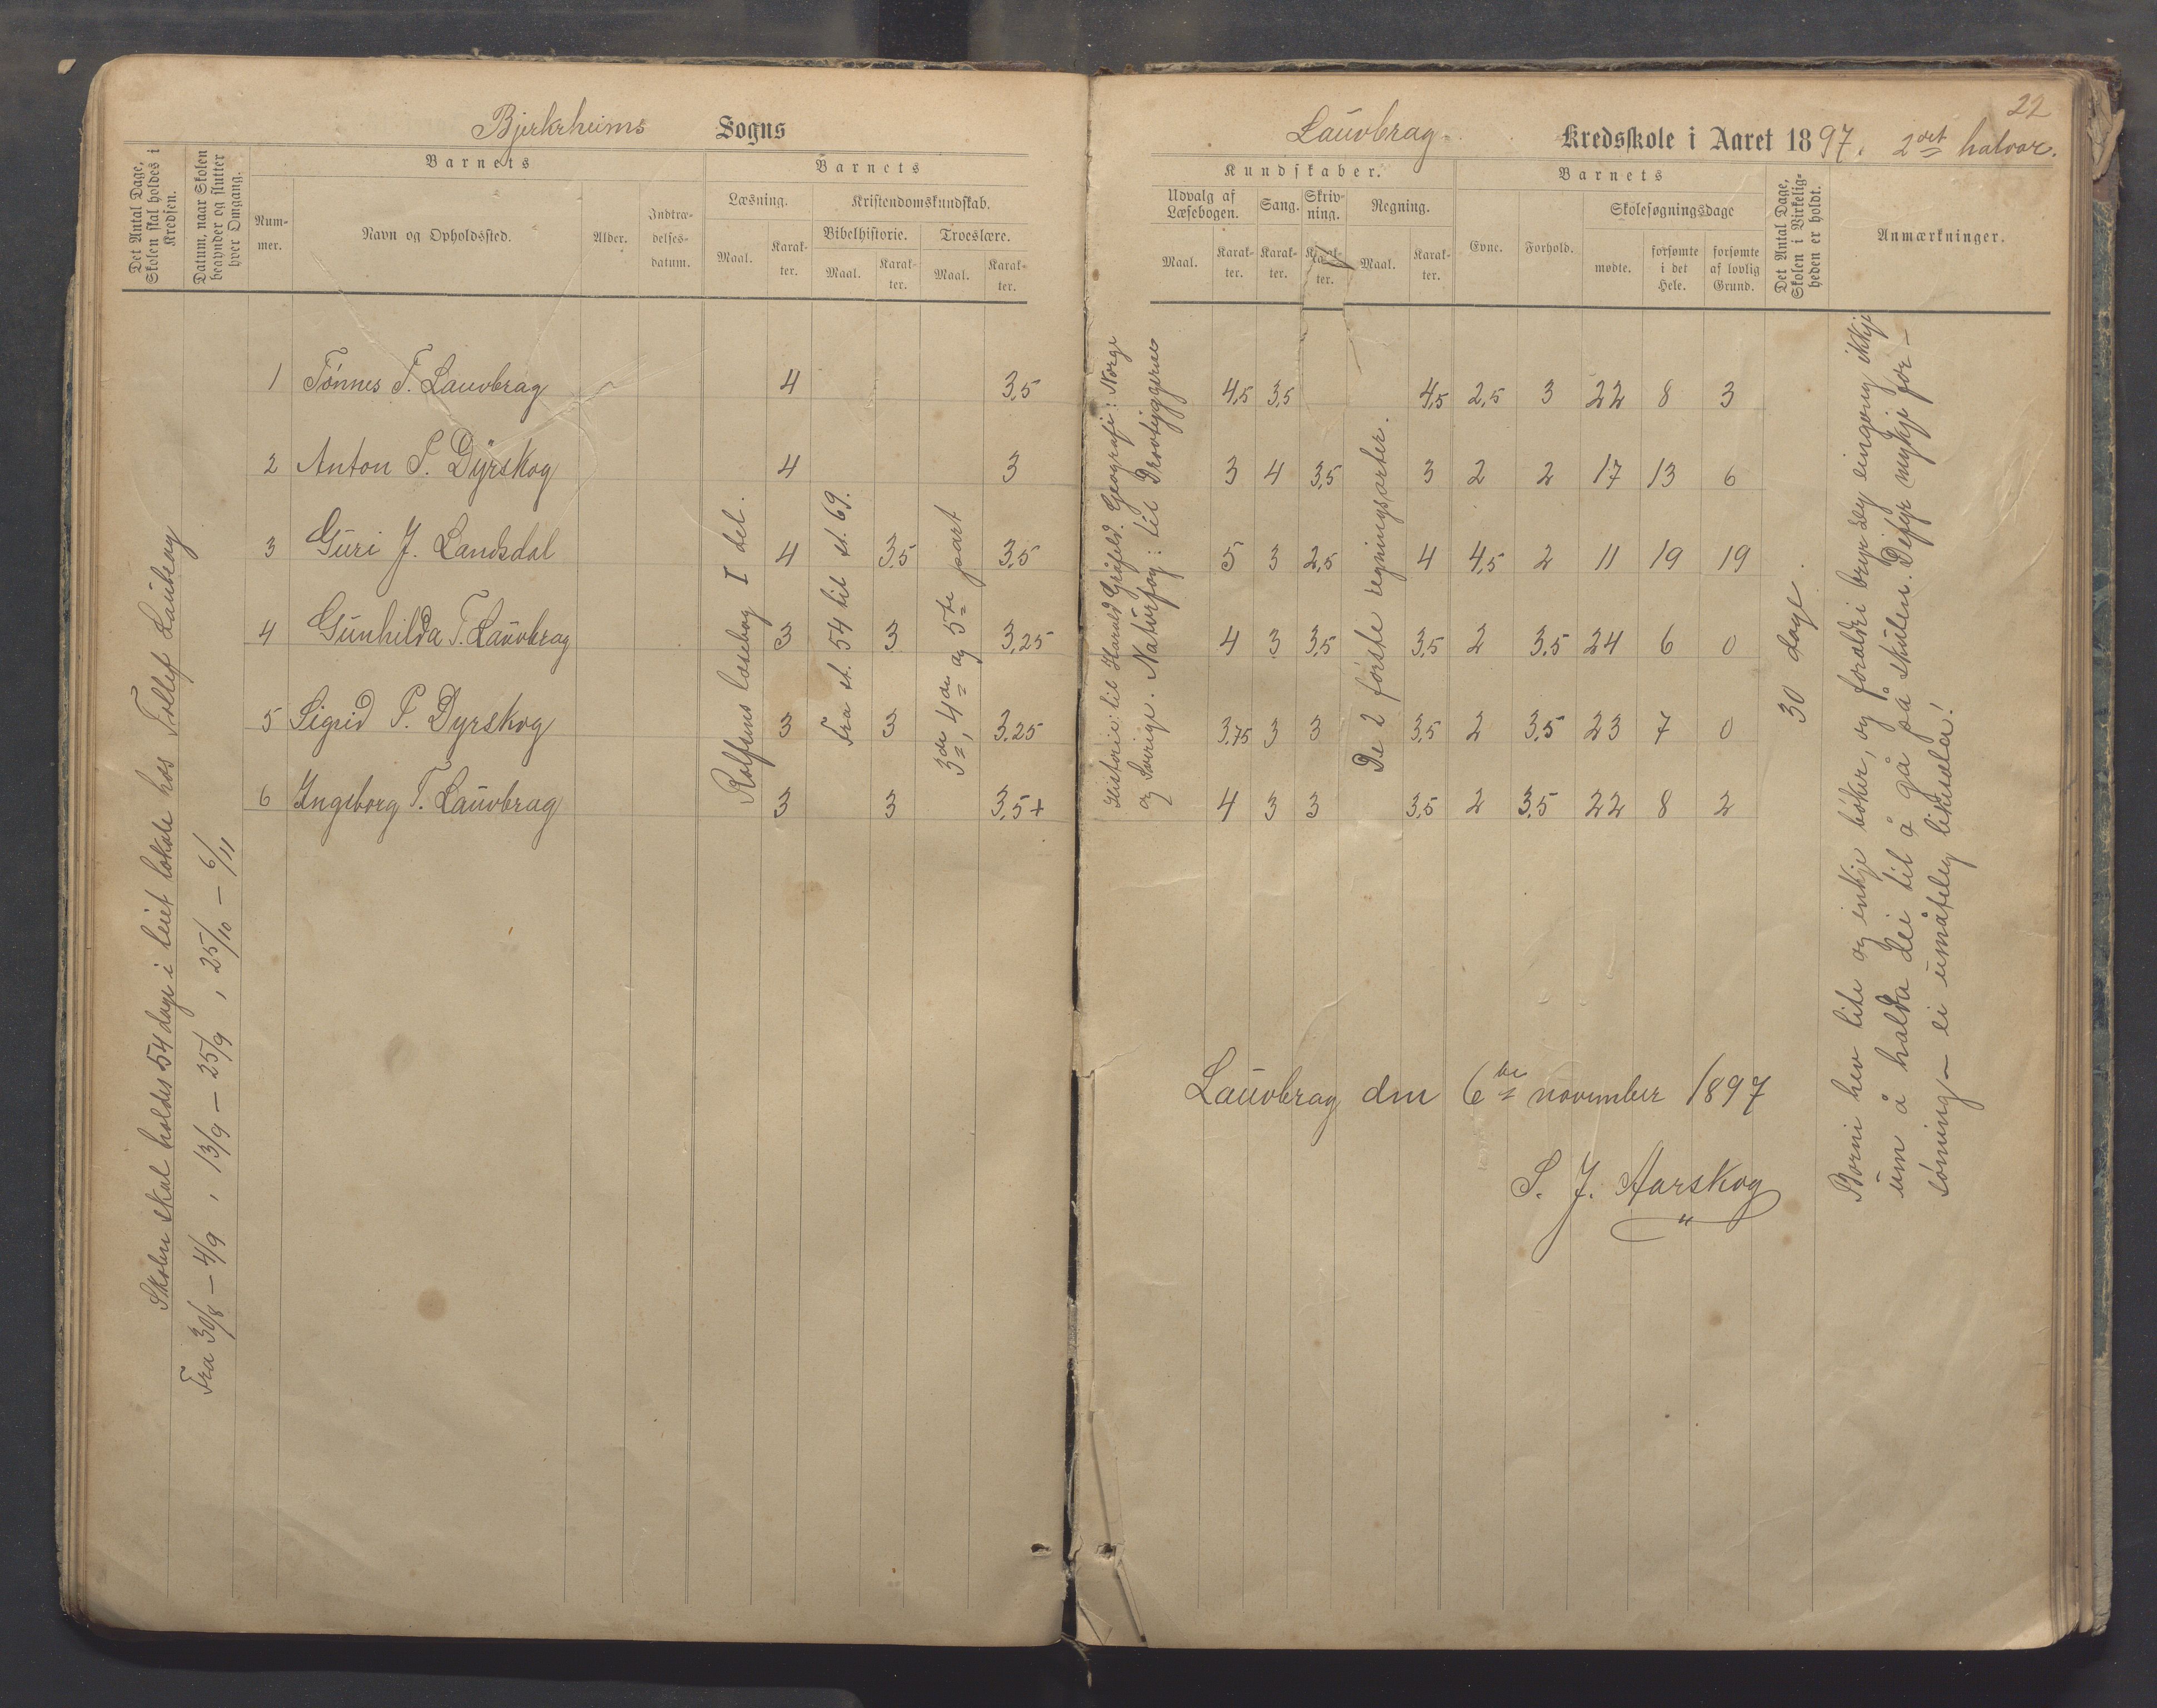 Bjerkrheims Sogns
Det Antal Dage, Skolen skal holdes i Kredsen.
Datum, naar Skolen begynder og slutter hver Omgang.
Barnets
Nummer.
Navn og Opholdssted.
Alder.
Indtrædelsesdatum.
Barnets
Læsning.
Kristendomskundskab.
Maal.
Karakter.
Bibelhistorie.
Troeslære.
Maal.
Karakter.
Maal.
Karakter.
Skolen skal holdes 54 dage i leiet lokale hos Tollef Lauvbrag
Fra 30/8 – 4/9, 13/9 – 25/9, 25/10 – 6/11
1 Tönnes T. Lauvbrag 4 3,5
2 Anton P. Dyrskog 4 3
3 Guri J. Landsdal 4 3,5 3,5
4 Gunhilda T. Lauvbrag 3 3 3,25
5 Sigrid P. Dyrskog 3 3 3,25
6 Ingeborg T. Lauvbrag 3 3 3,5+
Rolfsens læsebog I del.
Fra st. 54 til st. 69.
3die, 4de og 5te part
22
Lauvbrag Kredsskole i Aaret 1897. 2det halvaar.
Kundskaber.
Udvalg af Læsebogen.
Sang.
Skrivning.
Regning.
Maal.
Karakter.
Karakter.
Karakter.
Maal.
Karakter.
Barnets
Evne.
Forhold.
Skolesøgningsdage
mødte.
forsømte i det Hele.
forsømte af lovlig Grund.
Det Antal Dage, Skolen i Virkeligheden er holdt.
Anmærkninger.
Historie: til Harald Gråfeld. Geografi: Norge
og Sverige. Naturfag: til Drøvtyggerne
4,5 3,5 4,5 2,5 3 22 8 3
3 4 3,5 3 2 2 17 13 6
5 3 2,5 4 4,5 2 11 19 19
4 3 3,5 3,5 2 3,5 24 6 0
3,75 3 3 3,5 2 3,5 23 7 0
4 3 3 3,5 2 3,5 22 8 2
De 2 förste regningsarter.
30 dage.
Borni hev lite og inkje böker, og foraldri bryr seg eingong ikkje
um å halda dei til å gå på skulen. Difyr mykje for-
söming – ei umåteleg likesæla!
Lauvbrag den 6te november 1897
S. J. Aarskog